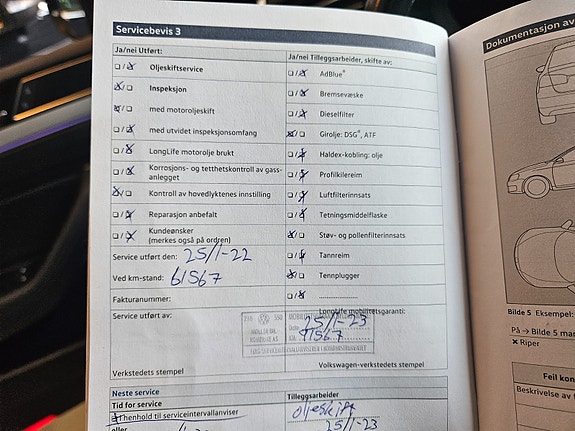 Servicebevis 3
Ja/nei Utført:
Oljeskiftservice
Inspeksjon
med motoroljeskift
med utvidet inspeksjonsomfang
LongLife motorolje brukt
Korrosjons- og tetthetskontroll av gass-
anlegget
Kontroll av hovedlyktenes innstilling
Reparasjon anbefalt
Kundeønsker
(merkes også på ordren)
Service utført den: 25/1-22
Ved km-stand: 61567
Fakturanummer:
Service utført av:
Verkstedets stempel
Ja/nei Tilleggsarbeider, skifte av:
AdBlue®
Bremsevæske
Dieselfilter
Girolje: DSG®, ATF
Haldex-kobling: olje
Profilkilereim
Luftfilterinnsats
Tetningsmiddelflaske
Støv- og pollenfilterinnsats
Tannreim
Tennplugger
LongLife mobilitetsgaranti:
25/1-23
91567
Volkswagen-verkstedets stempel
Neste service
Tid for service
I henhold til serviceintervallanviser
eller
Tilleggsarbeider
oljeskift
25/1-23
Dokumentasjon av
Bilde 5 Eksempel:
På → Bilde 5 mar
× Riper
Feil kon
Beskrivelse av f